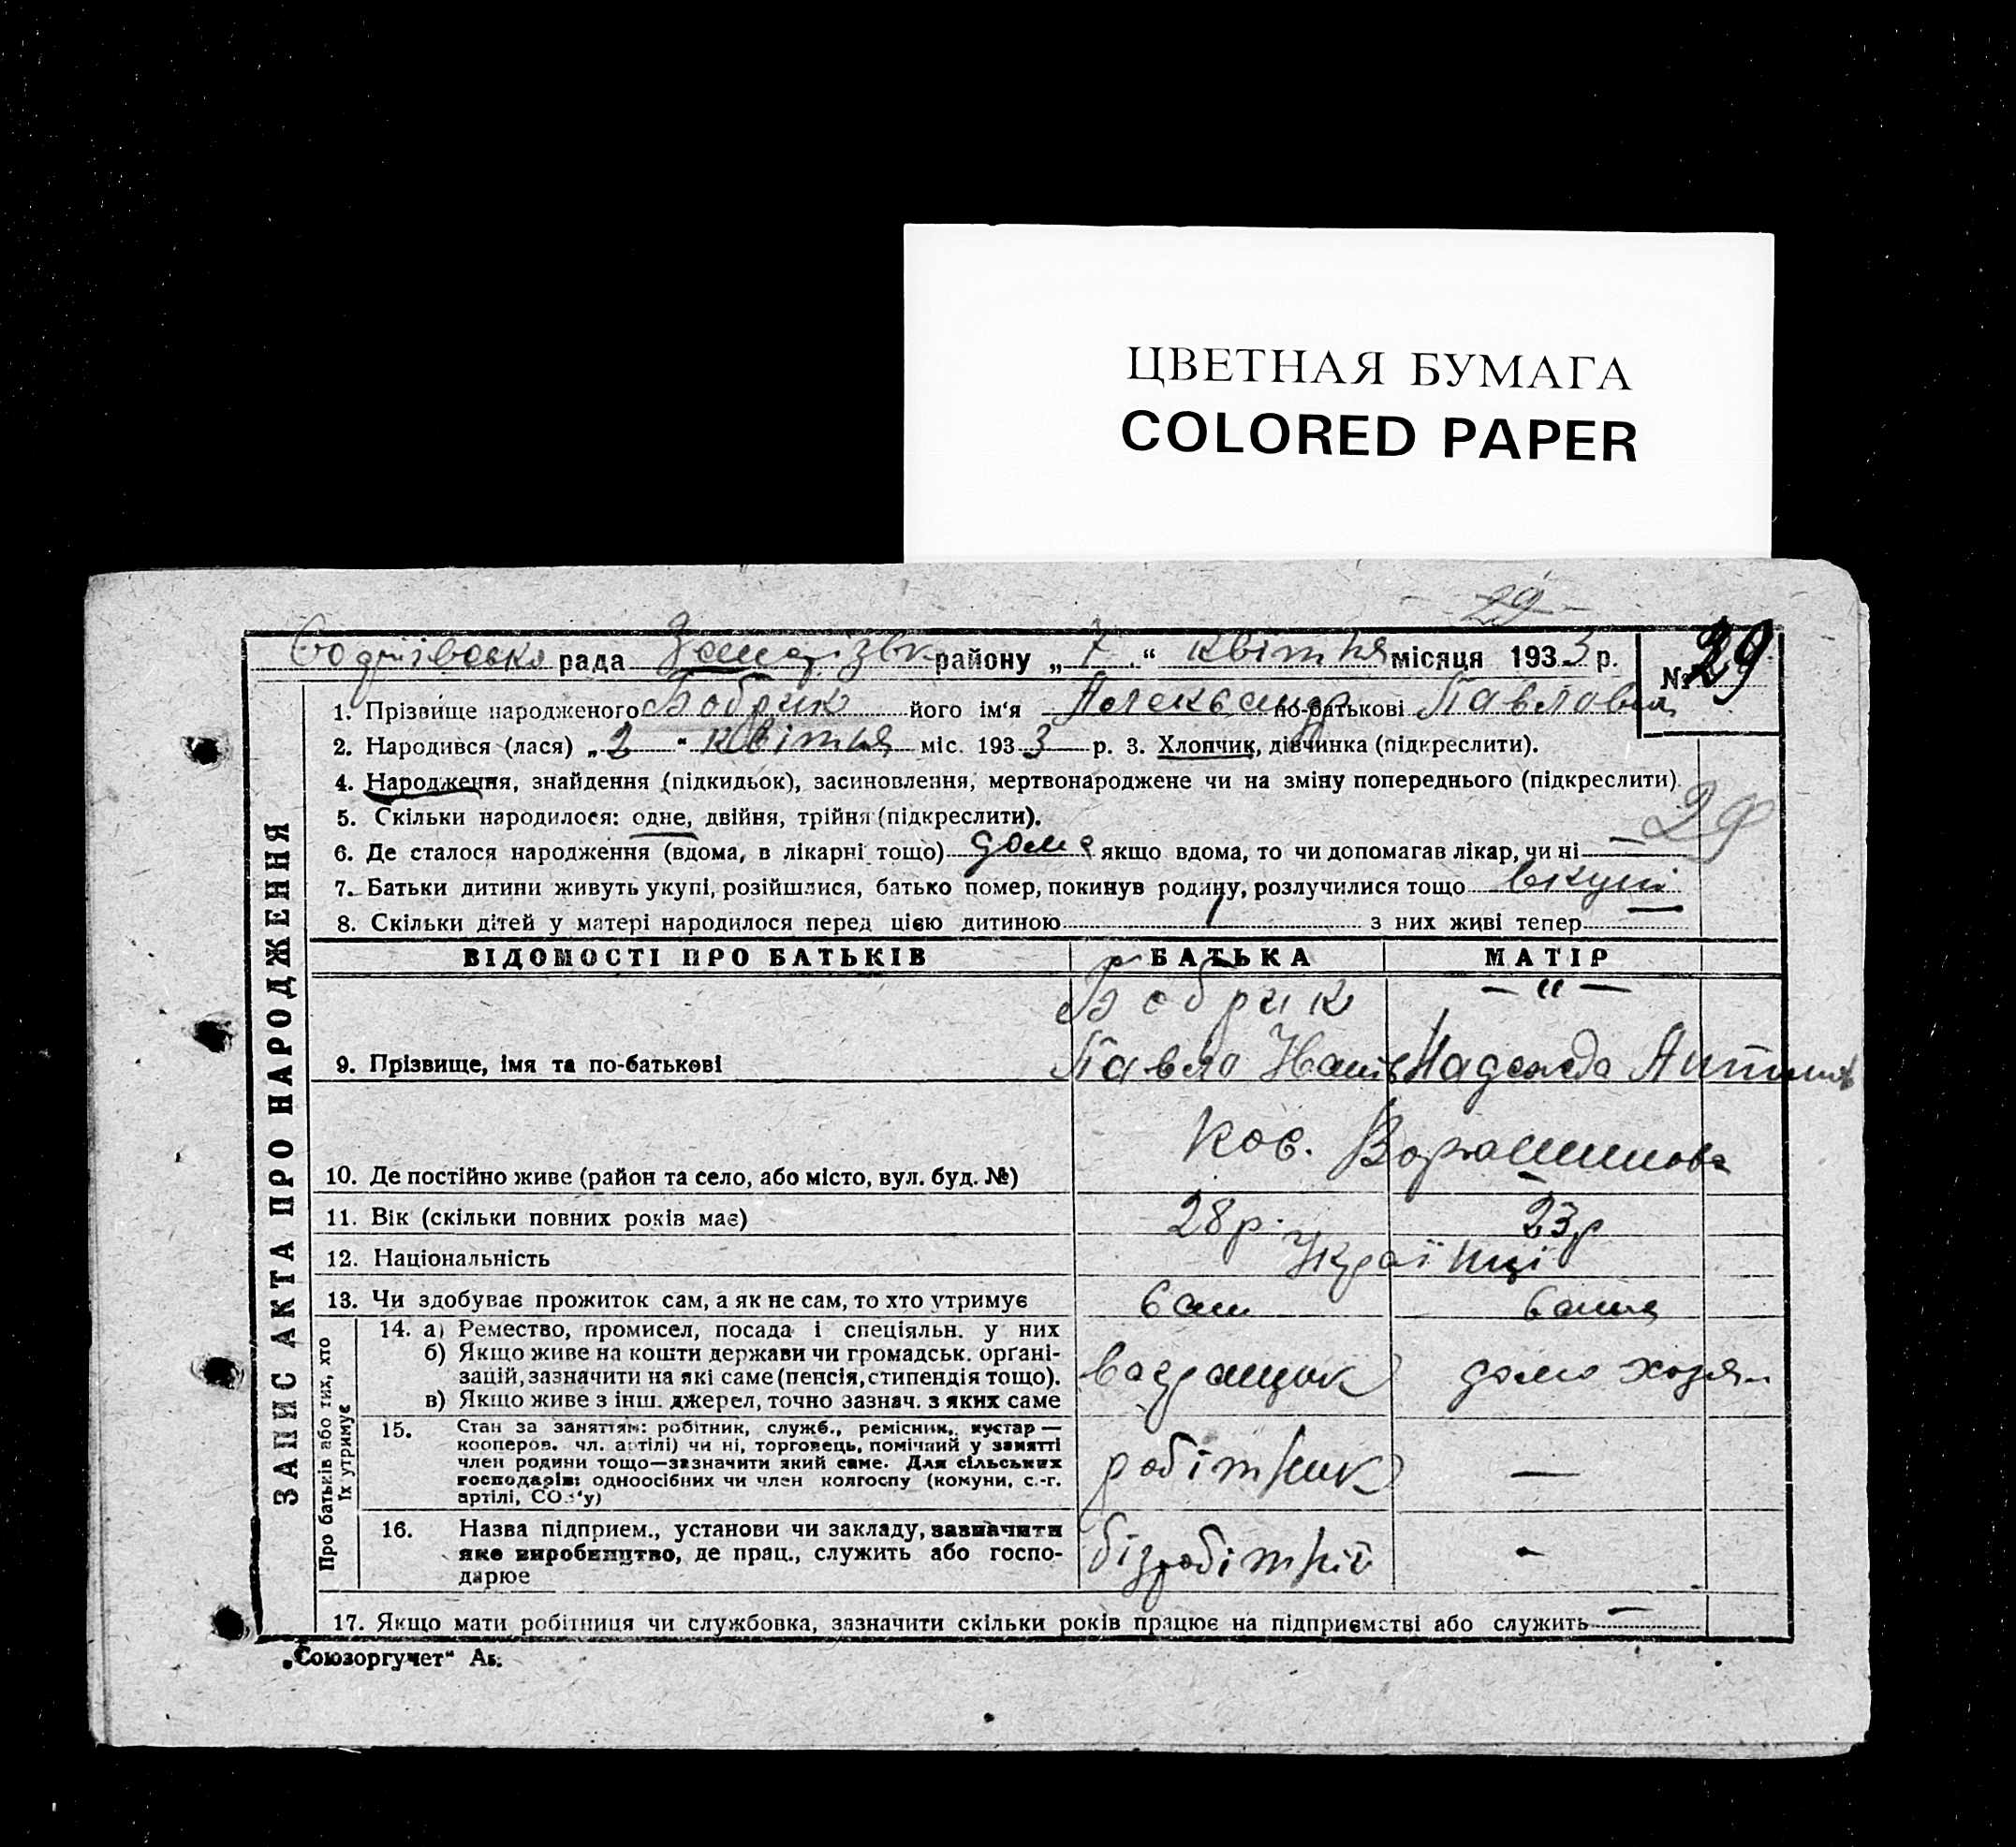 ЦВЕТНАЯ БУМАГА
COLORED PAPER
29
рада району „ 7 “ квітня місяця 1933 р. № 29
ЗАПИС АКТА ПРО НАРОДЖЕННЯ
1. Прізвище народженого Бобрик його ім'я Александр по-батькові Павлович
2. Народився (лася) „ 2 “ квітня міс. 1933 р. 3. Хлопчик, дівчинка (підкреслити).
4. Народження, знайдення (підкидьок), засиновлення, мертвонароджене чи на зміну попереднього (підкреслити)
29
5. Скільки народилося: одне, двійня, трійня (підкреслити).
6. Де сталося народження (вдома, в лікарні тощо) дома якщо вдома, то чи допомагав лікар, чи ні —
7. Батьки дитини живуть укупі, розійшлися, батько помер, покинув родину, розлучилися тощо вкупі
8. Скільки дітей у матері народилося перед цією дитиною 1 з них живі тепер —
ВІДОМОСТІ ПРО БАТЬКІВ БАТЬКА МАТІР
Бобрик — „ —
9. Прізвище, імя та по-батькові Павло Надежда
10. Де постійно живе (район та село, або місто, вул. буд. №)
11. Вік (скільки повних років має) 28 р. 23 р
12. Національність Українці
13. Чи здобуває прожиток сам, а як не сам, то хто утримує сам сама
Про батьків або тих, хто їх утримує
14. а) Ремество, промисел, посада і спеціяльн. у них
б) Якщо живе на кошти держави чи громадськ. орґані-
зацій, зазначити на які саме (пенсія, стипендія тощо).
в) Якщо живе з інш. джерел, точно зазнач. з яких саме
домо хозя
15. Стан за заняттям: робітник, служб., ремісник, кустар —
кооперов. чл. артілі) чи ні, торговець, помічний у занятті
член родини тощо—зазначити який саме. Для сільських
господарів: одноосібних чи член колгоспу (комуни, с.-г.
артілі, СОЗ'у)
робітник —
16. Назва підприєм., установи чи закладу, зазначити
яке виробництво, де прац., служить або госпо-
дарює
безробітній -
17. Якщо мати робітниця чи службовка, зазначити скільки років працює на підприємстві або служить —
„Союзоргучет“